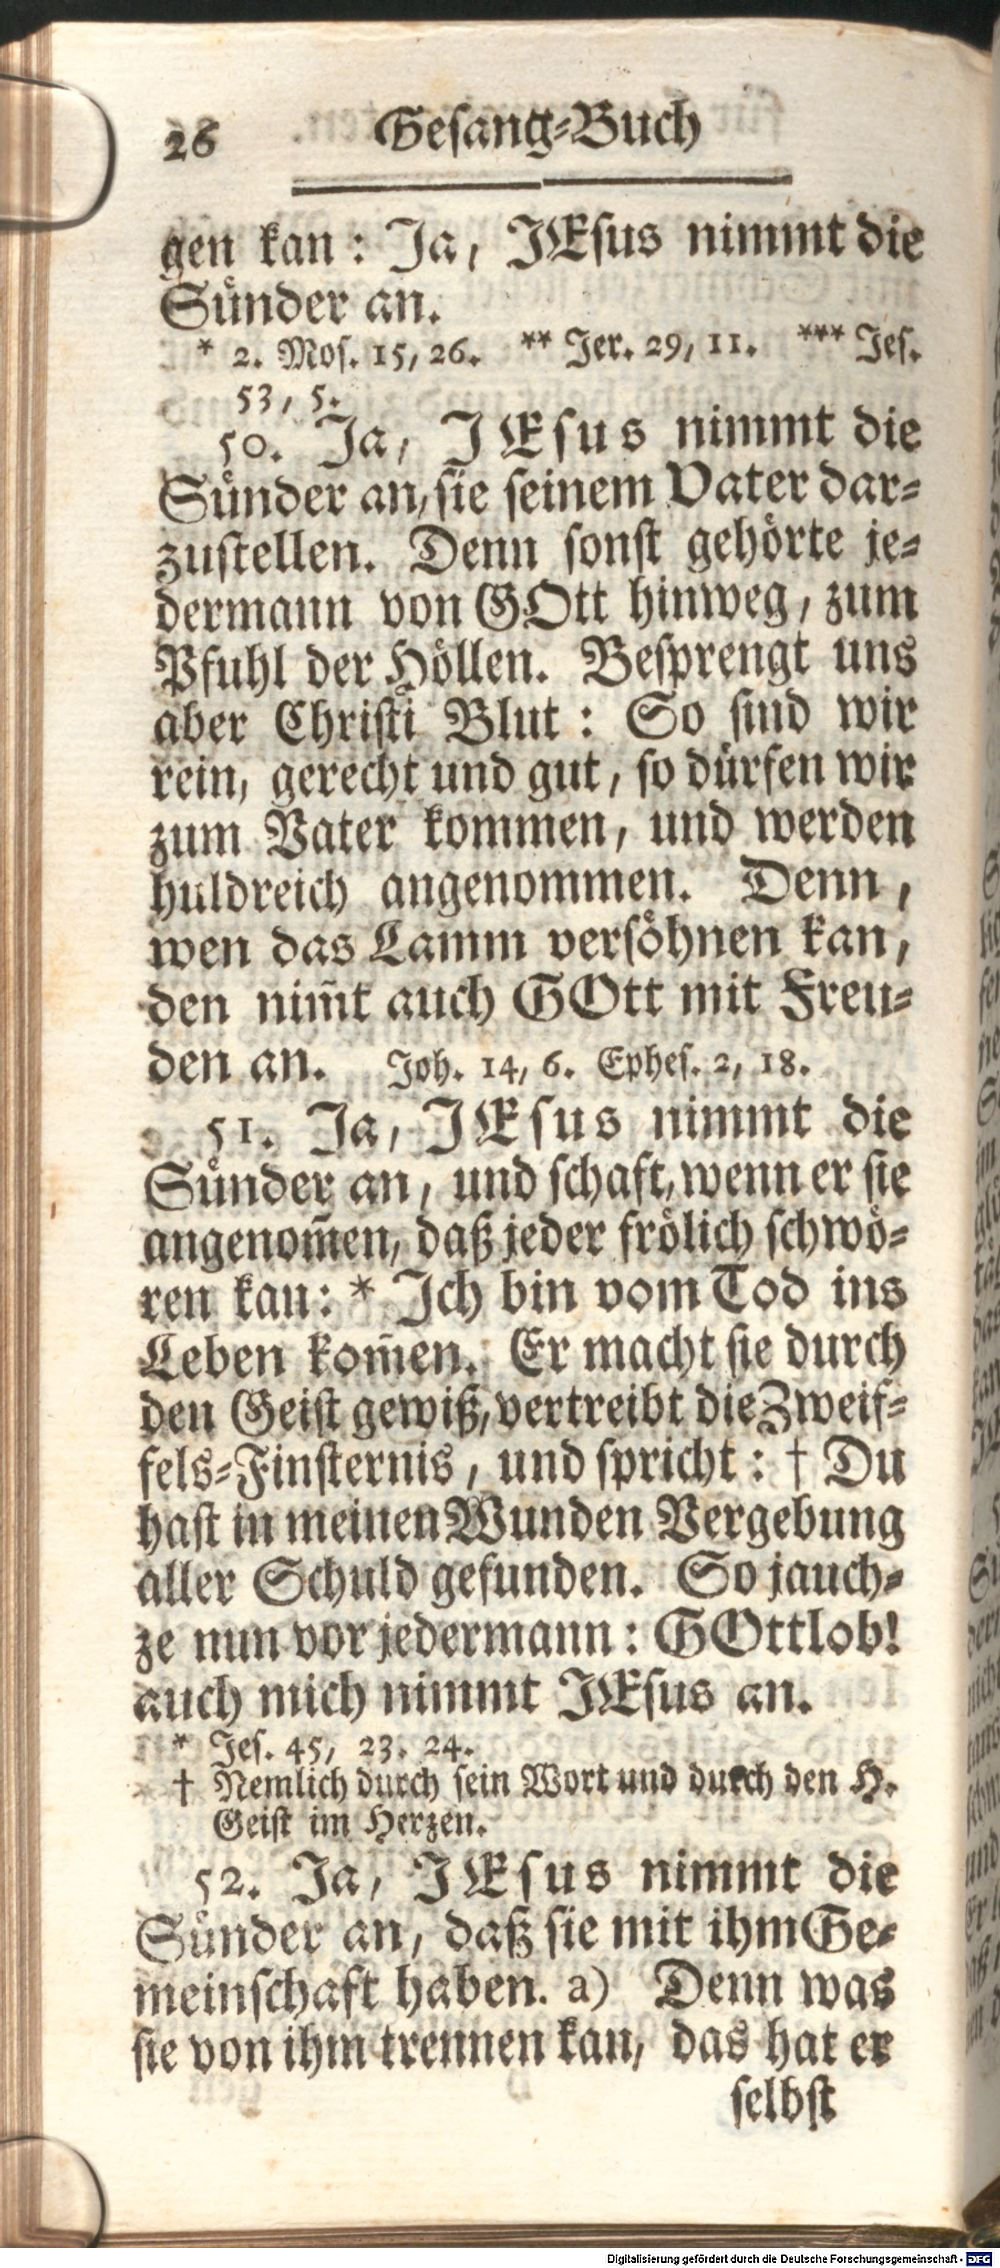 26 Gesang-Buch
gen kan: Ja, JEsus nimmt die
Sünder an.
* 2. Mos. 15, 26. ** Jer. 29, 11. *** Jes.
53, 5.
50. Ja, JEsus nimmt die
Sünder an, sie seinem Vater dar-
zustellen. Denn sonst gehörte je-
dermann von GOtt hinweg, zum
Pfuhl der Höllen. Besprengt uns
aber Christi Blut: So sind wir
rein, gerecht und gut, so dürfen wir
zum Vater kommen, und werden
huldreich angenommen. Denn,
wen das Lamm versöhnen kan,
den nim̃t auch GOtt mit Freu-
den an. Joh. 14, 6. Ephes. 2, 18.
51. Ja, JEsus nimmt die
Sünder an, und schaft, wenn er sie
angenom̃en, daß jeder frölich schwö-
ren kan: * Ich bin vom Tod ins
Leben kom̃en. Er macht sie durch
den Geist gewiß, vertreibt die Zweif-
fels-Finsternis, und spricht: † Du
hast in meinen Wunden Vergebung
aller Schuld gefunden. So jauch-
ze nun vor jedermann: GOttlob!
auch mich nimmt JEsus an.
* Jes. 45, 23. 24.
† Nemlich durch sein Wort und durch den H.
Geist im Herzen.
52. Ja, JEsus nimmt die
Sünder an, daß sie mit ihm Ge-
meinschaft haben. a) Denn was
sie von ihm trennen kan, das hat er
selbst
Digitalisierung gefördert durch die Deutsche Forschungsgemeinschaft - DFG